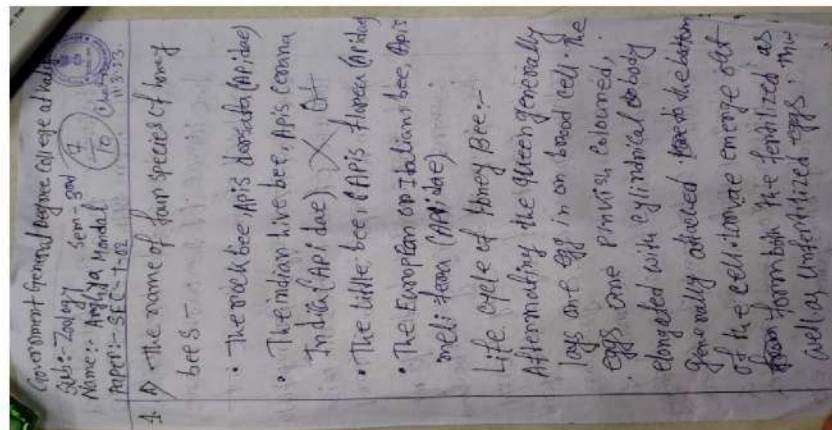 Government General Degree College at
Sub:- Zoology Sem - 3rd
Name:- Mondal
Paper:- SEC-T-02
7/10
11.3.23.
1. A) The name of four species of honey
bees -
• The rock bee, Apis dorsata (Apidae)
• The indian hive bee, Apis cerana
India (Apidae)
• The little bee, (Apis florea (Apidae)
• The European or Italians bee, Apis
meli fera (Apidae)
Life cycle of Honey Bee:-
After mating the queen generally
lays one egg in on brood cell. The
eggs are pinvish coloured,
elongated with cylindrical body
generally attached to the bottom
of the cell. Larvae emerge out
from both the fertilized as
well as unfertilized eggs. The